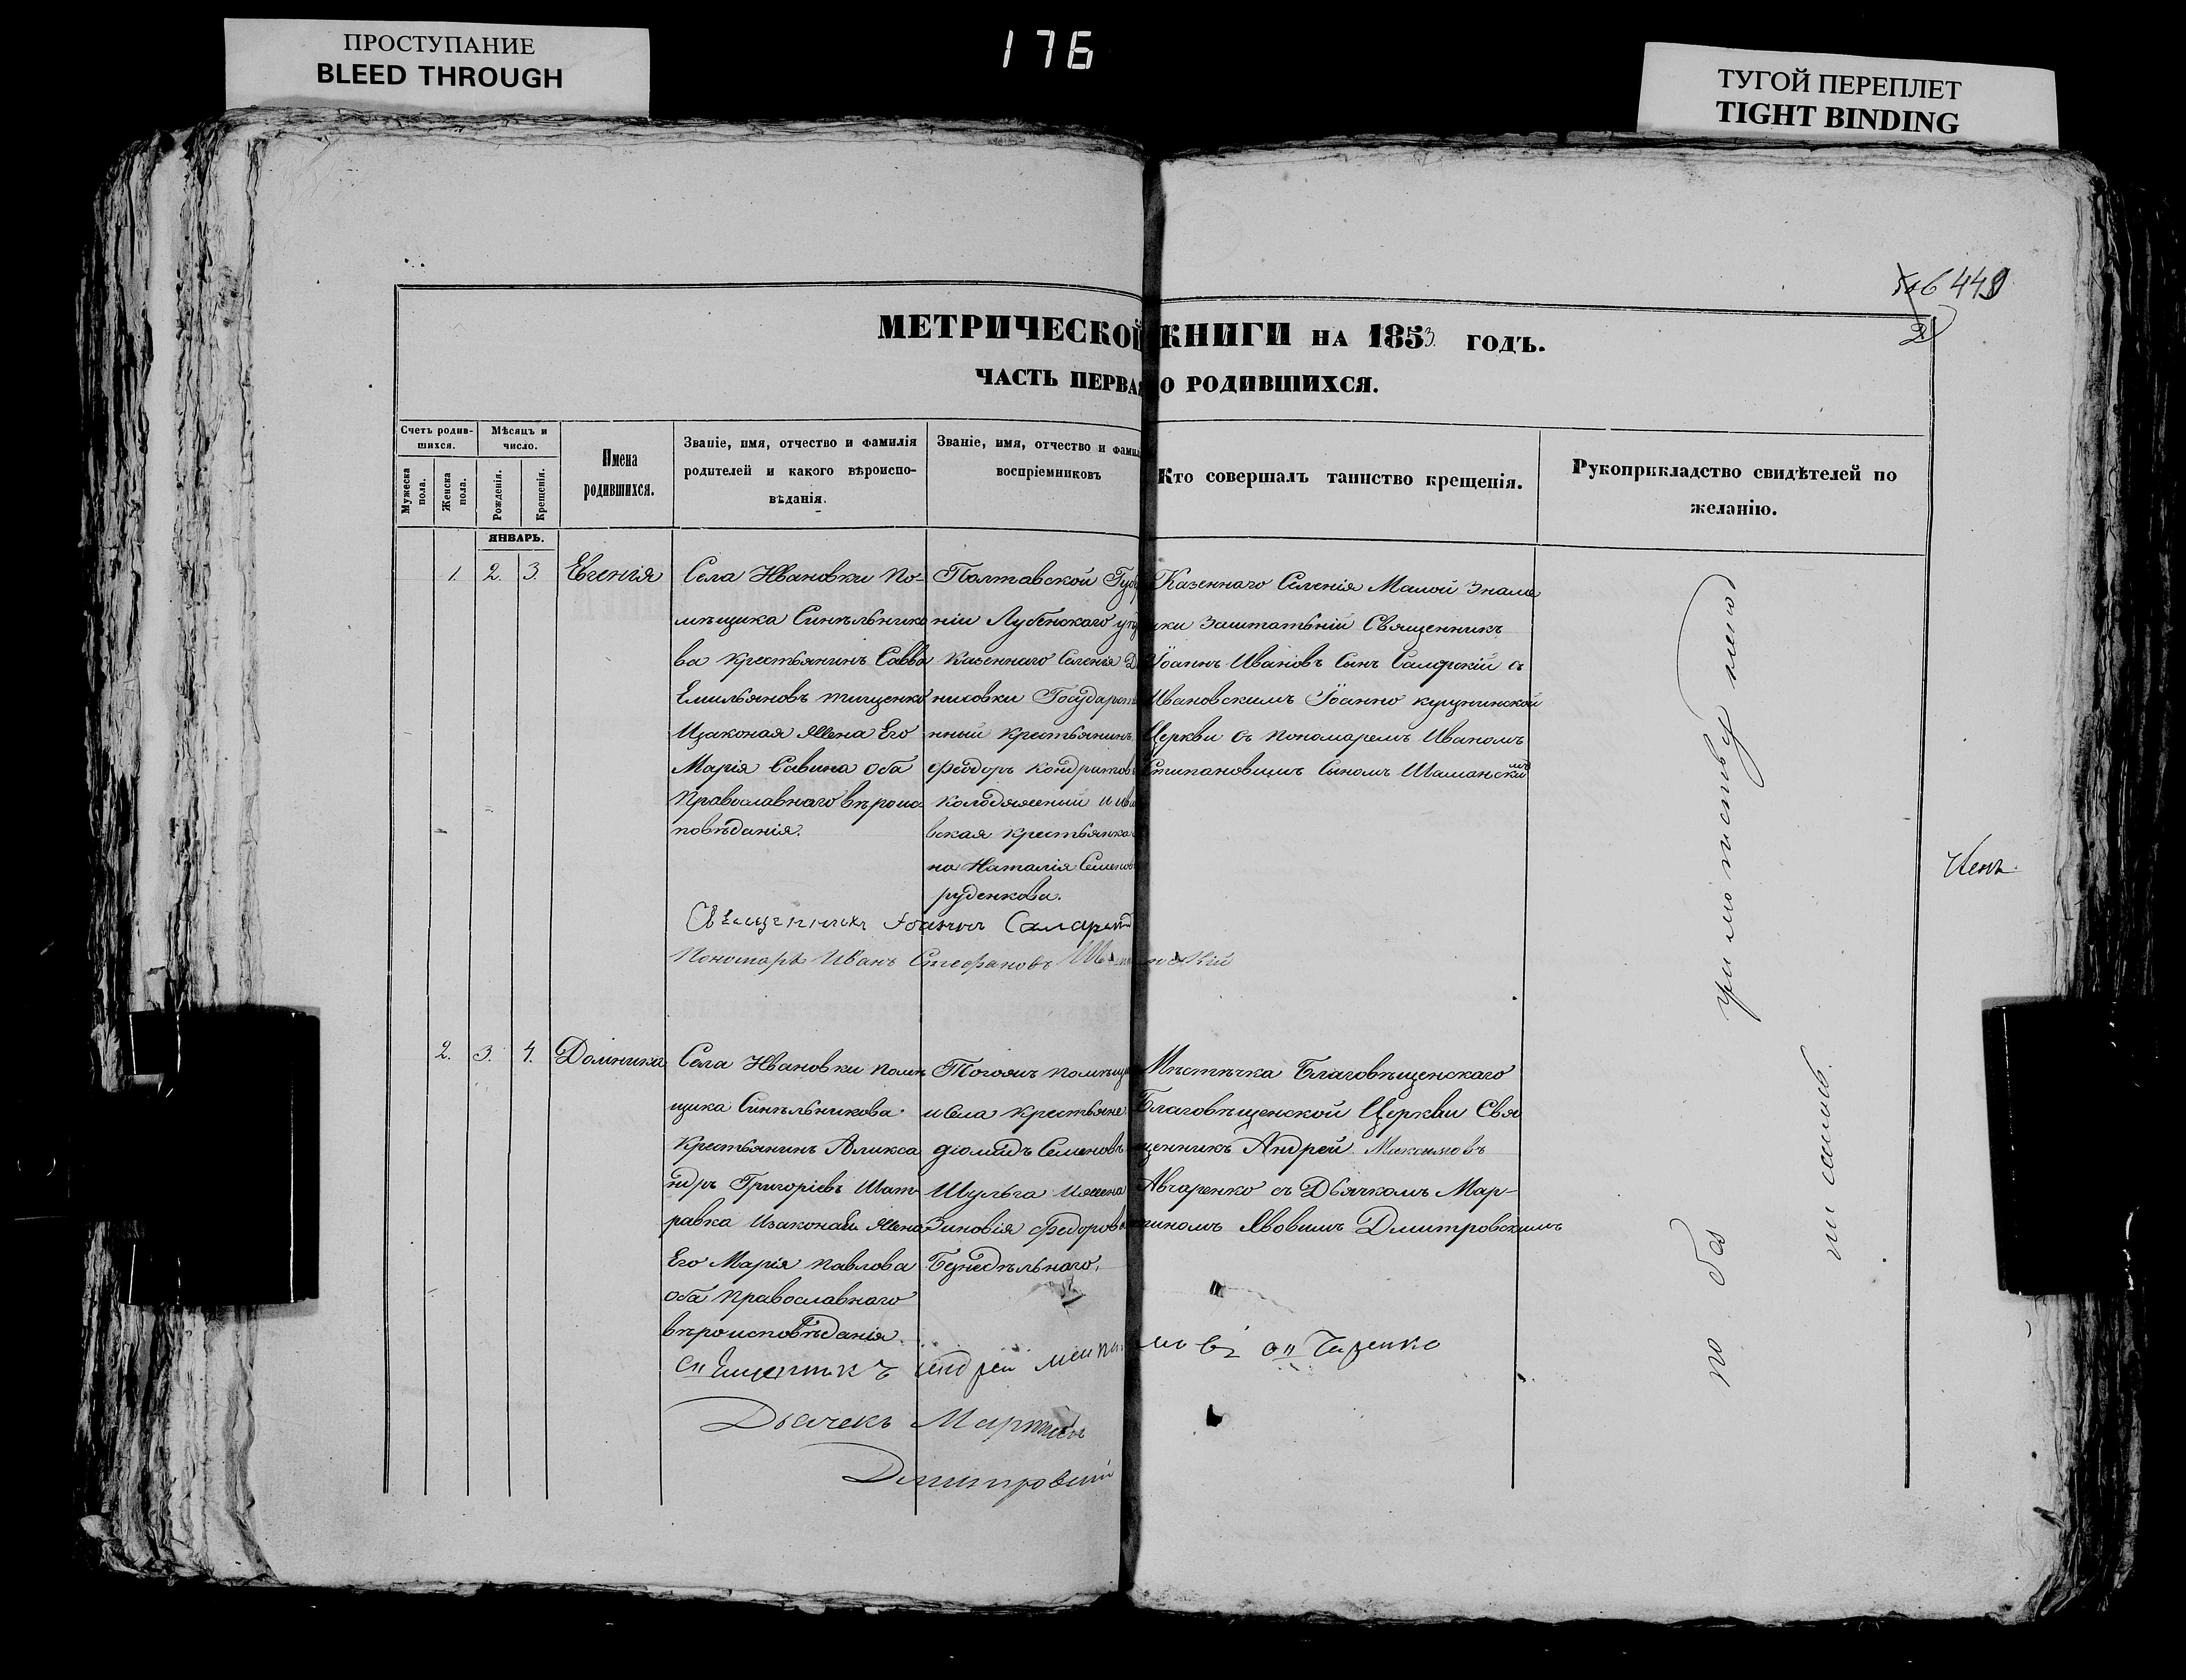 ПРОСТУПАНИЕ
BLEED THROUGH
176
ТУГОЙ ПЕРЕПЛЕТ
TIGHT BINDING
449
2
МЕТРИЧЕСКОЙ КНИГИ НА 1853 ГОДЪ.
ЧАСТЬ ПЕРВАЯ О РОДИВШИХСЯ.
Счетъ родив-
шихся.
Мужеска
пола.
Женска
пола.
Мѣсяцъ и
число.
Рожденія.
Крещенія.
Имена
родившихся.
Званіе, имя, отчество и фамилія
родителей и какого вѣроиспо-
вѣданія.
Званіе, имя, отчество и фамил
воспріемниковъ
Кто совершалъ таинство крещенія.
Рукоприкладство свидѣтелей по
желанію.
ЯНВАРЬ.
1. 2. 3. Евгенія
Села Ивановки по-
мѣщика Синѣльнико
ва крестьянинъ Савва
Емильяновъ тищенко
Изаконая Жена Его
Марія Савина оба
Православнаго вѣроис-
повѣданія.
Полтавской Губе
ніи Лубенскаго уѣз
Казеннаго Селенія
нисовки Государств
нный крестьянинъ
Феодоръ Кондратовъ
колодяжний и ива
вская крестьянка
на Наталія Семенов
руденкова.
Казеннаго Селенія Малой Знаме
нки Заштатьній Священникъ
Іоаннъ Ивановъ Сынъ Самарскій съ
Ивановскимъ Іоанно
Церкви съ пономаремъ Иваномъ
Стипановимъ Сыномъ Шаманскимъ
Священникъ Іоаннъ Самарскій
Пономарь Иванъ Стефановъ
2. 3. 4. Домникія
Села Ивановки помѣ
щика Синѣльникова
Крестьянинъ Аликса
ндръ Григоріевъ Шат-
равка Изаконая Жена
Его Марія Павлова
оба Православнаго
вѣроисповѣданія
Тогожъ помѣщи
исела крестьяне
діомидъ Семеновъ
Шульга ижена
Зиновія Федорова
Безнедѣльнаго.
Мѣстѣчка Благовѣщенскаго
Благовѣщенской Церкви Свя
щенникъ Андрей Максимовъ
Авчаренко съ Дьячкомъ Мар-
тиномъ Явовимъ Дмитровскимъ
Дьячекъ Мартинъ
Дмитровский